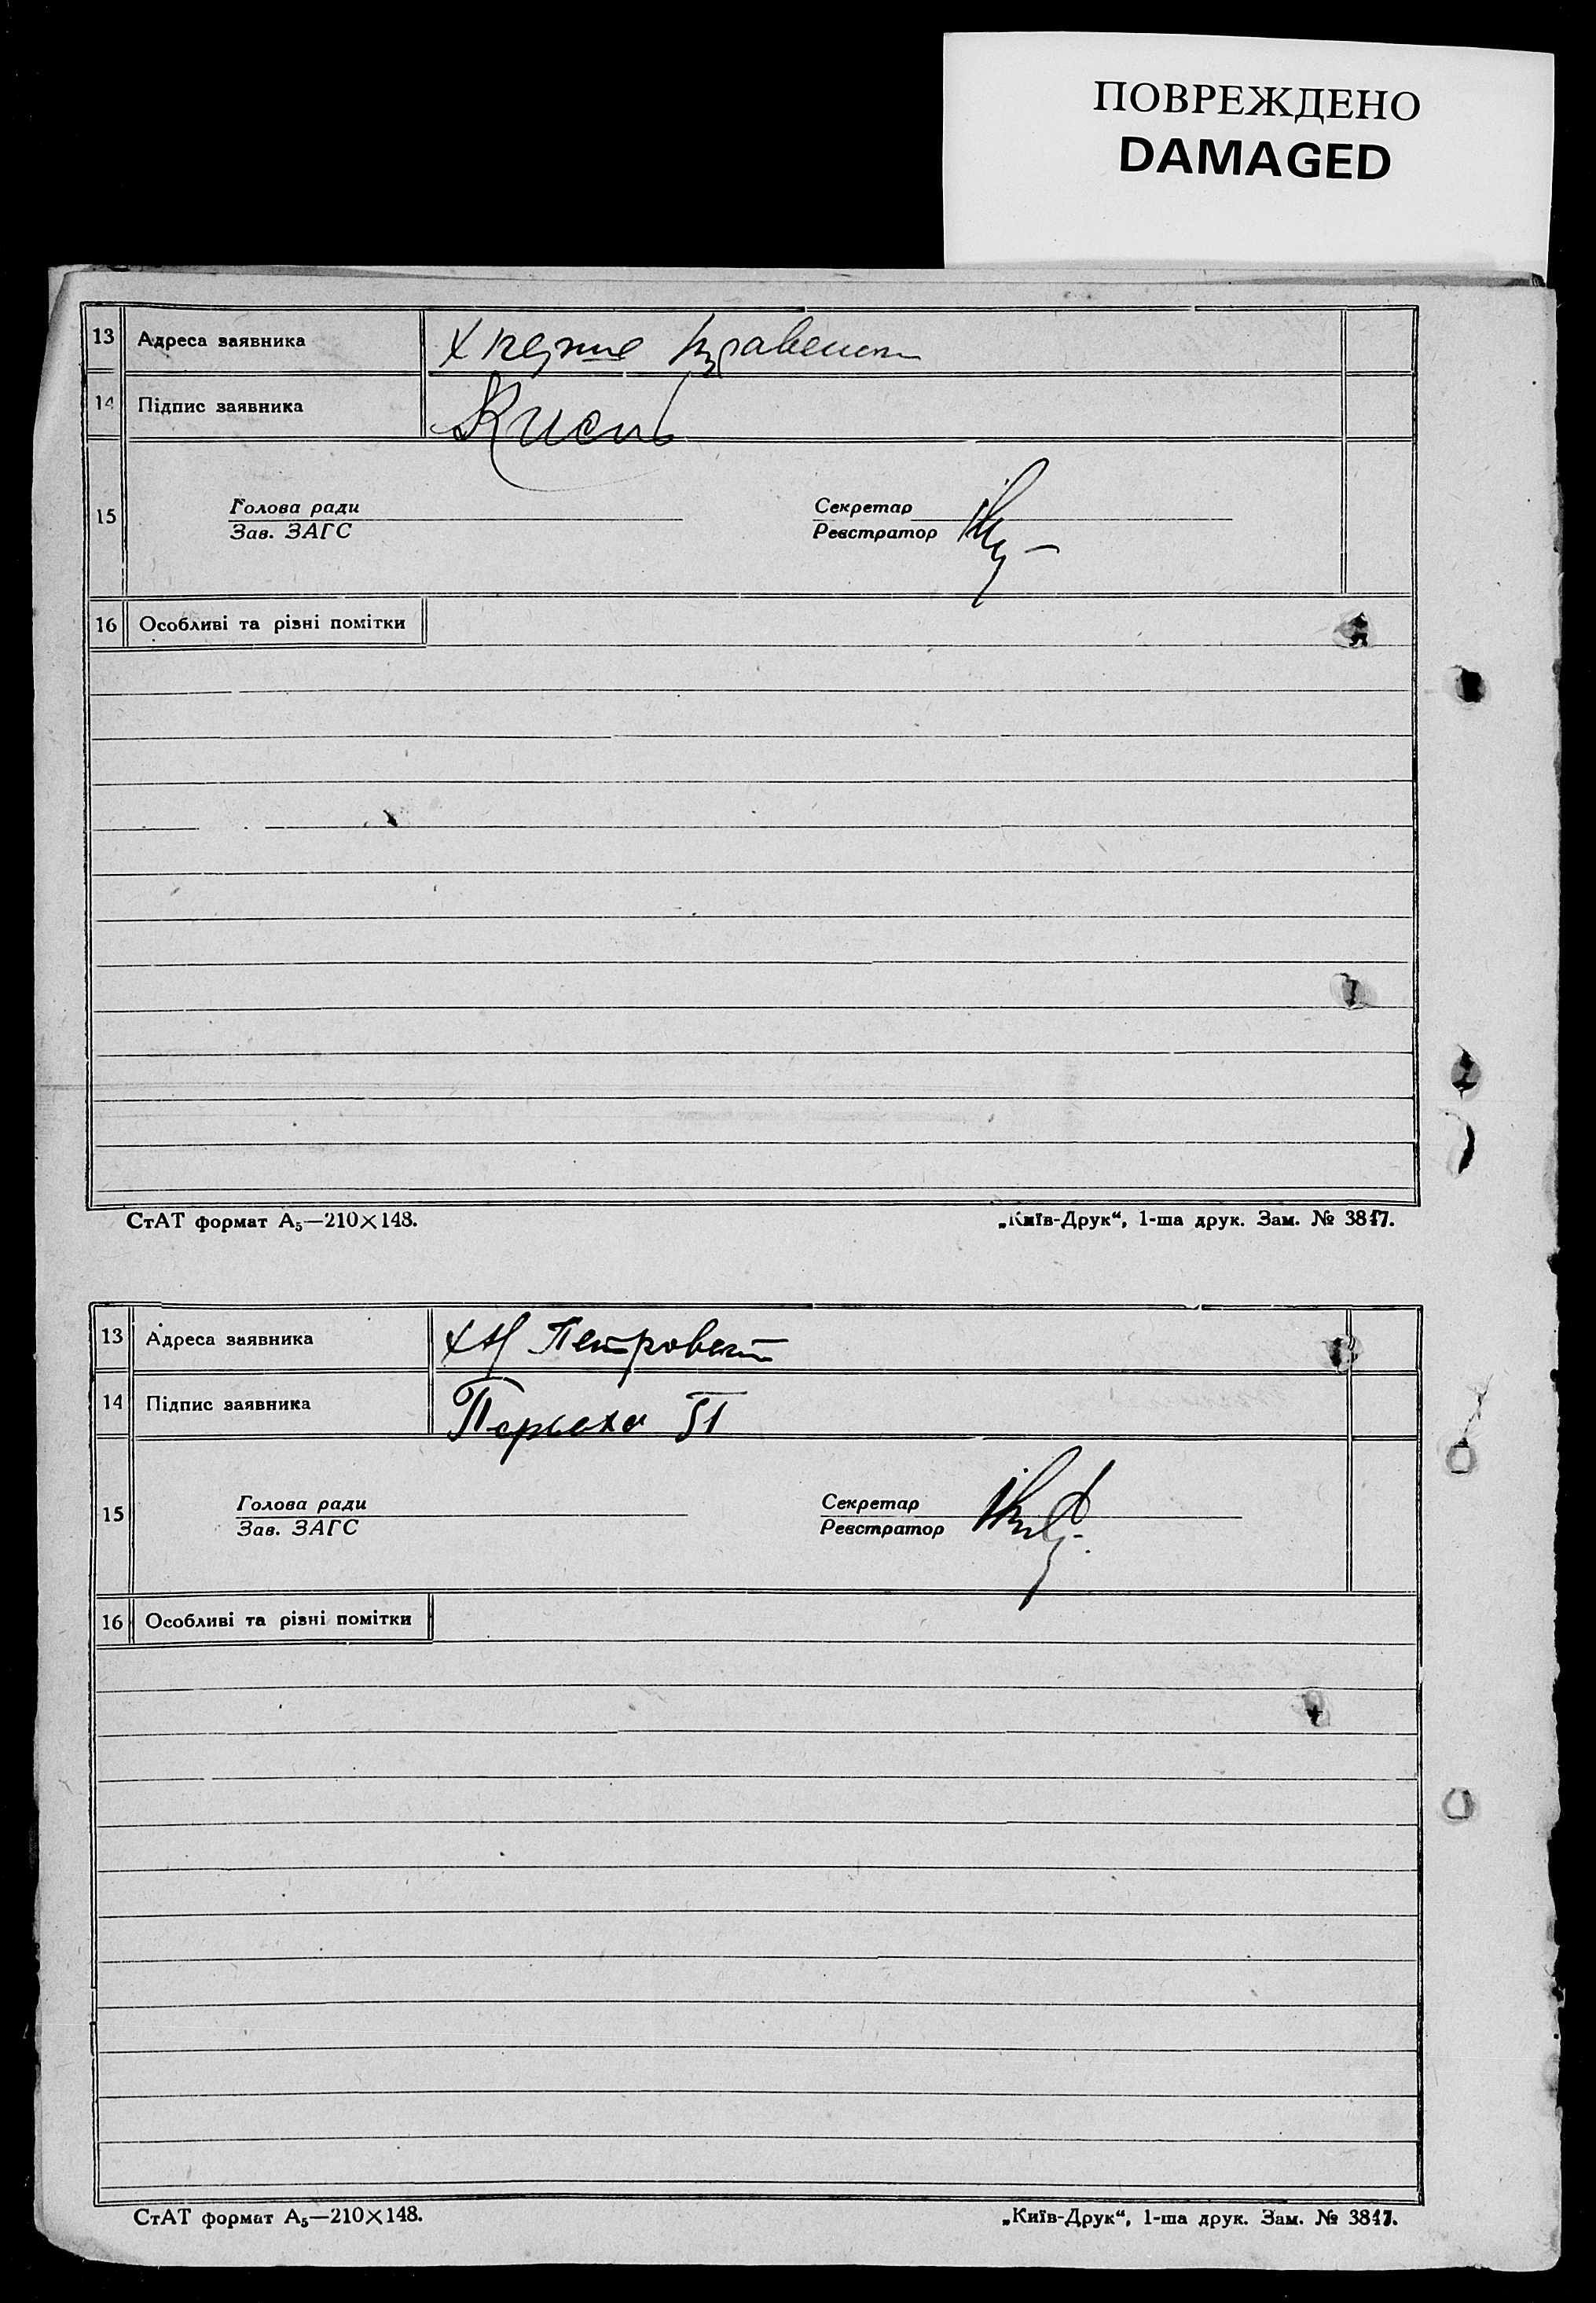 ПОВРЕЖДЕНО
DAMAGED
13 Адреса заявника
14 Підпис заявника Кисіль
15
Голова ради
Зав. ЗАГС
Секретар
Реєстратор
16 Особливі та різні помітки
СтАТ формат А₅—210×148.
„Київ-Друк“, 1-ша друк. Зам. № 3817.
13 Адреса заявника
14 Підпис заявника
15
Голова ради
Зав. ЗАГС
Секретар
Реєстратор
16 Особливі та різні помітки
СтАТ формат А₅—210×148.
„Київ-Друк“, 1-ша друк. Зам. № 3817.